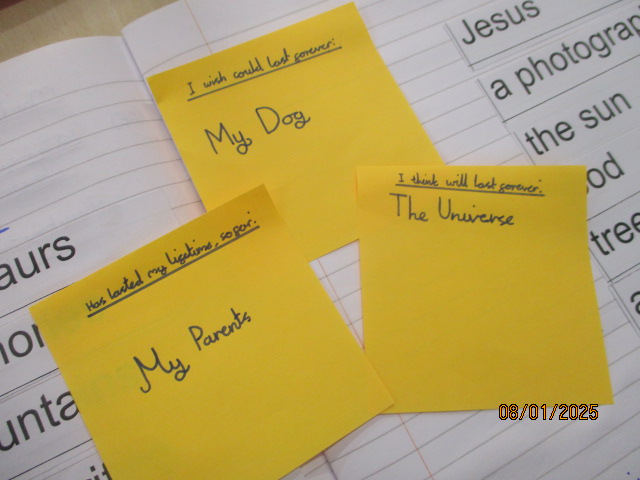 I wish could last forever:
My Dog
I think will last forever:
The Universe
Has lasted my lifetime, so far:
My Parents
Jesus
a photograp
the sun
od
tree
a
aurs
unta
08/01/2025